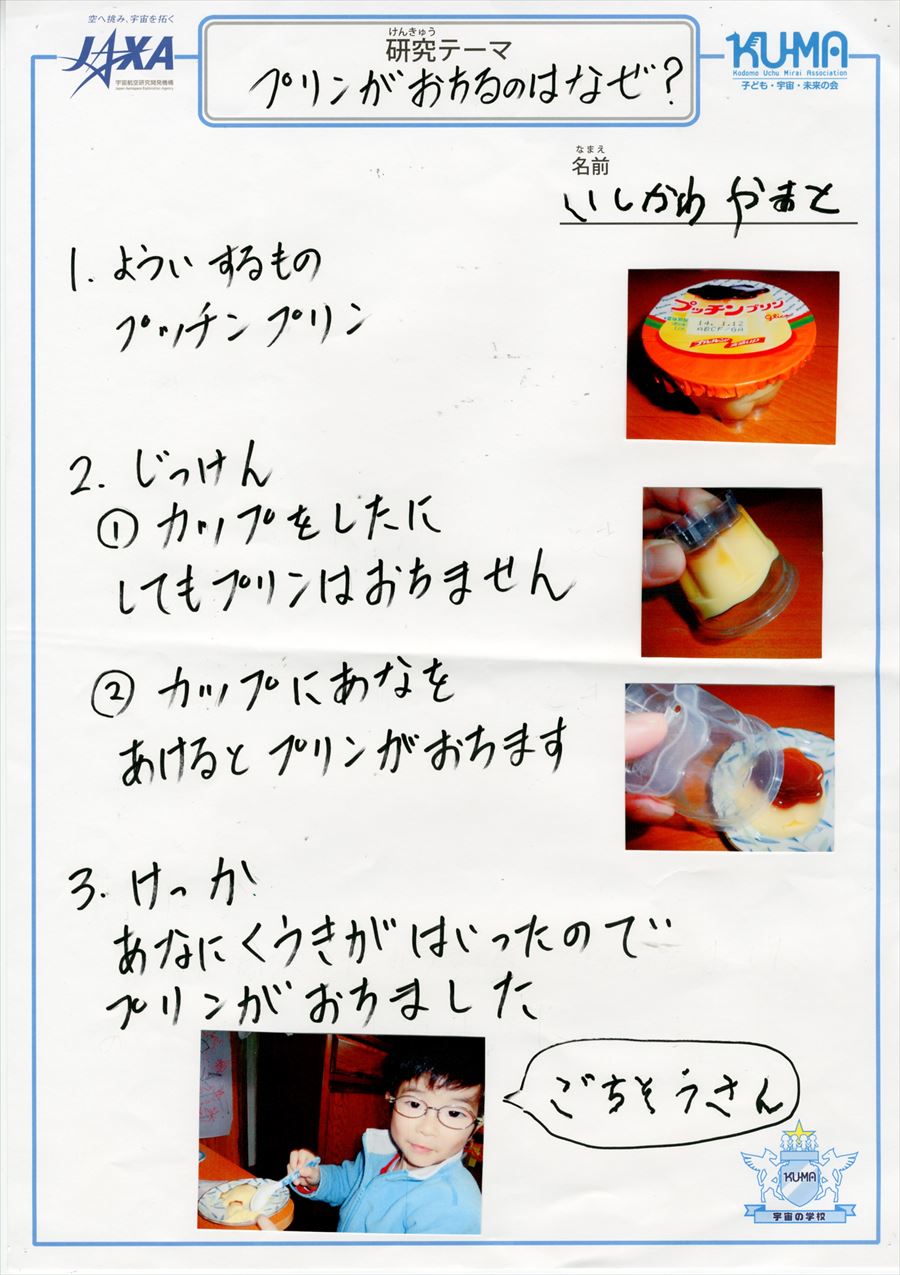 空へ挑み、宇宙を拓く
JAXA
宇宙航空研究開発機構
Japan Aerospace Exploration Agency
けんきゅう
研究テーマ
プリンがおちるのはなぜ?
KU-MA
Kodomo Uchu Mirai Association
子ども・宇宙・未来の会
なまえ
名前
いしかわ やまと
1. ようい するもの
プッチン プリン
プッチンプリン
glico
14.1.12
2. じっけん
① カップをしたに
してもプリンはおちません
② カップにあなを
あけると プリンがおちます
3. けっか
あなにくうきが はいったので
プリンが おちました
ごちそうさん
KU-MA
宇宙の学校